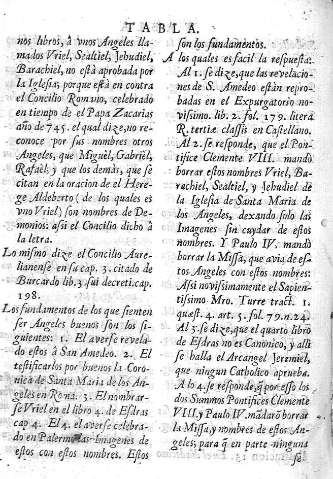 TABLA.
nos libros, à vnos Angeles lla-
mados Vriel, Sealtiel, Jehudiel,
Barachiel, no està aprobada por
la Iglesia, porque està en contra
el Concilio Romano, celebrado
en tiempo de el Papa Zacarias
año de 745. el qual dize, no re-
conoce por sus nombres otros
Angeles, que Miguèl, Gabriel,
Rafaèl, y que los demàs, que se
citan en la oracion de el Here-
ge Aldeberto (de los quales es
vno Vriel) son nombres de De-
monios: assi el Concilio dicho à
la letra.
Lo mismo dize el Concilio Aure-
lianense en su cap. 3. citado de
Burcardo lib. 3 sui decreti cap.
198.
Los fundamentos de los que sienten
ser Angeles buenos son los si-
guientes: 1. El averse revela-
do estos à San Amedeo. 2. El
testificarlos por buenos la Coro-
nica de Santa Maria de los An-
geles en Roma. 3. El nombrar-
se Vriel en el libro 4. de Esdras
cap 4. El 4. el averse celebra-
do en Palermo las Imagenes de
estos con estos nombres. Estos
son los fundamentos.
A los quales es facil la respuesta:
Al 1. se dize, que las revelacio-
nes de S. Amedeo estàn repro-
badas en el Expurgatorio no-
vissimo. lib. 2. fol. 179. litera
R. tertiæ classis en Castellano.
Al 2. se responde, que el Pon-
tifice Clemente VIII. mandò
borrar estos nombres Vriel, Ba-
rachiel, Sealtiel, y Jehudiel de
la Iglesia de Santa Maria de
los Angeles, dexando solo las
Imagenes sin cuydar de estos
nombres. Y Paulo IV. mandò
borrar la Missa, que avia de es-
tos Angeles con estos nombres:
Assi novissimamente el Sapien-
tissimo Mro. Turre tract. 1.
quæst. 4. art. 5. fol. 79. n. 24.
Al 3. se dize, que el quarto libro
de Esdras no es Canonico, y alli
se halla el Arcangel Jeremiel,
que ningun Catholico aprueba.
A lo 4. se responde, q̃ por esso los
dos Summos Pontifices Clemente
VIII. y Paulo IV. mãdarõ borrar
la Missa, y nombres de estos An-
geles, para q̃ en parte ninguna
se